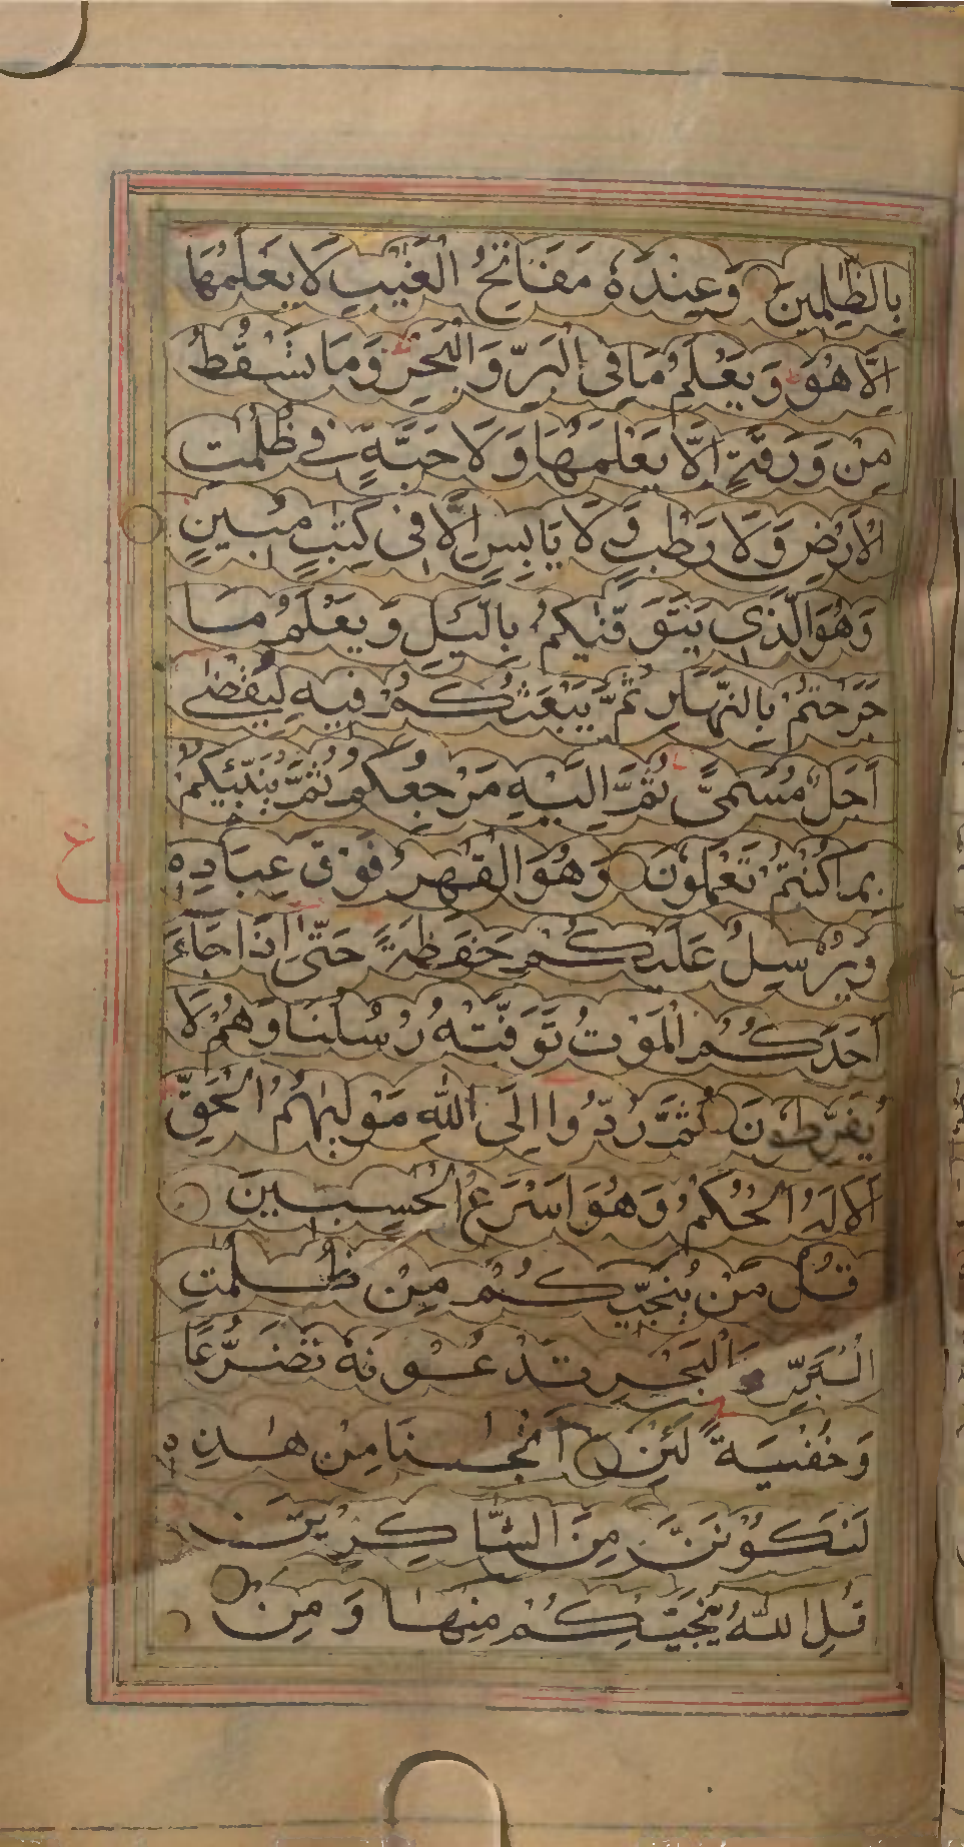 بِالظّٰلِمِينَ وَعِنْدَهُ مَفَاتِحُ الْغَيْبِ لَا يَعْلَمُهَا
اِلَّا هُوَ وَيَعْلَمُ مَا فِي الْبَرِّ وَالْبَحْرِ وَمَا تَسْقُطُ
مِنْ وَرَقَةٍ اِلَّا يَعْلَمُهَا وَلَا حَبَّةٍ فِي ظُلُمٰتِ
الْاَرْضِ وَلَا رَطْبٍ وَلَا يَابِسٍ اِلَّا فِي كِتٰبٍ مُبِينٍ
وَهُوَ الَّذِي يَتَوَفّٰيكُمْ بِالَّيْلِ وَيَعْلَمُ مَا
جَرَحْتُمْ بِالنَّهَارِ ثُمَّ يَبْعَثُكُمْ فِيهِ لِيُقْضٰى
اَجَلٌ مُسَمًّى ثُمَّ اِلَيْهِ مَرْجِعُكُمْ ثُمَّ يُنَبِّئُكُمْ
بِمَا كُنْتُمْ تَعْمَلُونَ وَهُوَ الْقَاهِرُ فَوْقَ عِبَادِهِ
ع
وَيُرْسِلُ عَلَيْكُمْ حَفَظَةً حَتّٰى اِذَا جَاءَ
اَحَدَكُمُ الْمَوْتُ تَوَفَّتْهُ رُسُلُنَا وَهُمْ لَا
يُفَرِّطُونَ ثُمَّ رُدُّوا اِلَى اللّٰهِ مَوْلٰيهُمُ الْحَقِّ
اَلَا لَهُ الْحُكْمُ وَهُوَ اَسْرَعُ الْحٰسِبِينَ
قُلْ مَنْ يُنَجِّيكُمْ مِنْ ظُلُمٰتِ
الْبَرِّ وَالْبَحْرِ تَدْعُونَهُ تَضَرُّعًا
وَخُفْيَةً لَئِنْ اَنْجٰىنَا مِنْ هٰذِهِ
لَنَكُونَنَّ مِنَ الشَّاكِرِينَ
قُلِ اللّٰهُ يُنَجِّيكُمْ مِنْهَا وَمِنْ